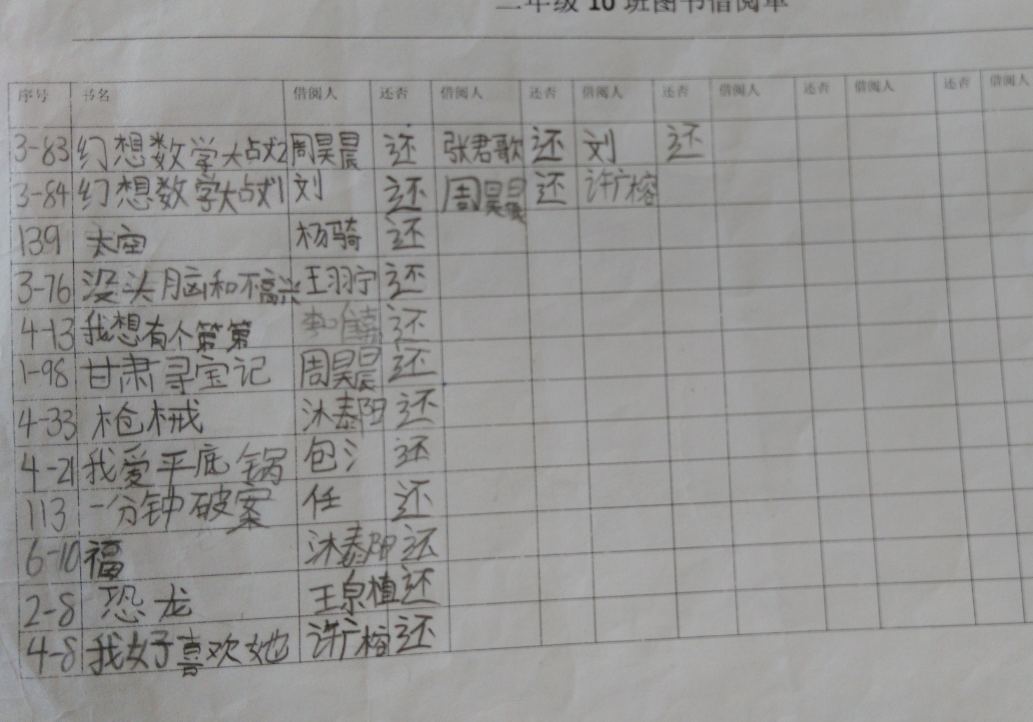 二年级 10 班图书借阅单
序号 书名 借阅人 还否 借阅人 还否 借阅人 还否 借阅人 还否 借阅人 还否 借阅人
3-83 幻想数学大战2 周昊晨 还 张君歌 还 刘 还
3-84 幻想数学大战1 刘 还 周昊晨 还 许广榕
139 太空 杨骑 还
3-76 没头脑和不高兴 王羽宁 还
4-13 我想有个弟弟 还
1-98 甘肃寻宝记 周昊晨 还
4-33 枪械 沐泰阳 还
4-21 我爱平底锅 包 还
113 一分钟破案 任 还
6-10 福 沐泰阳 还
2-8 恐龙 王泉植 还
4-8 我好喜欢她 许广榕 还